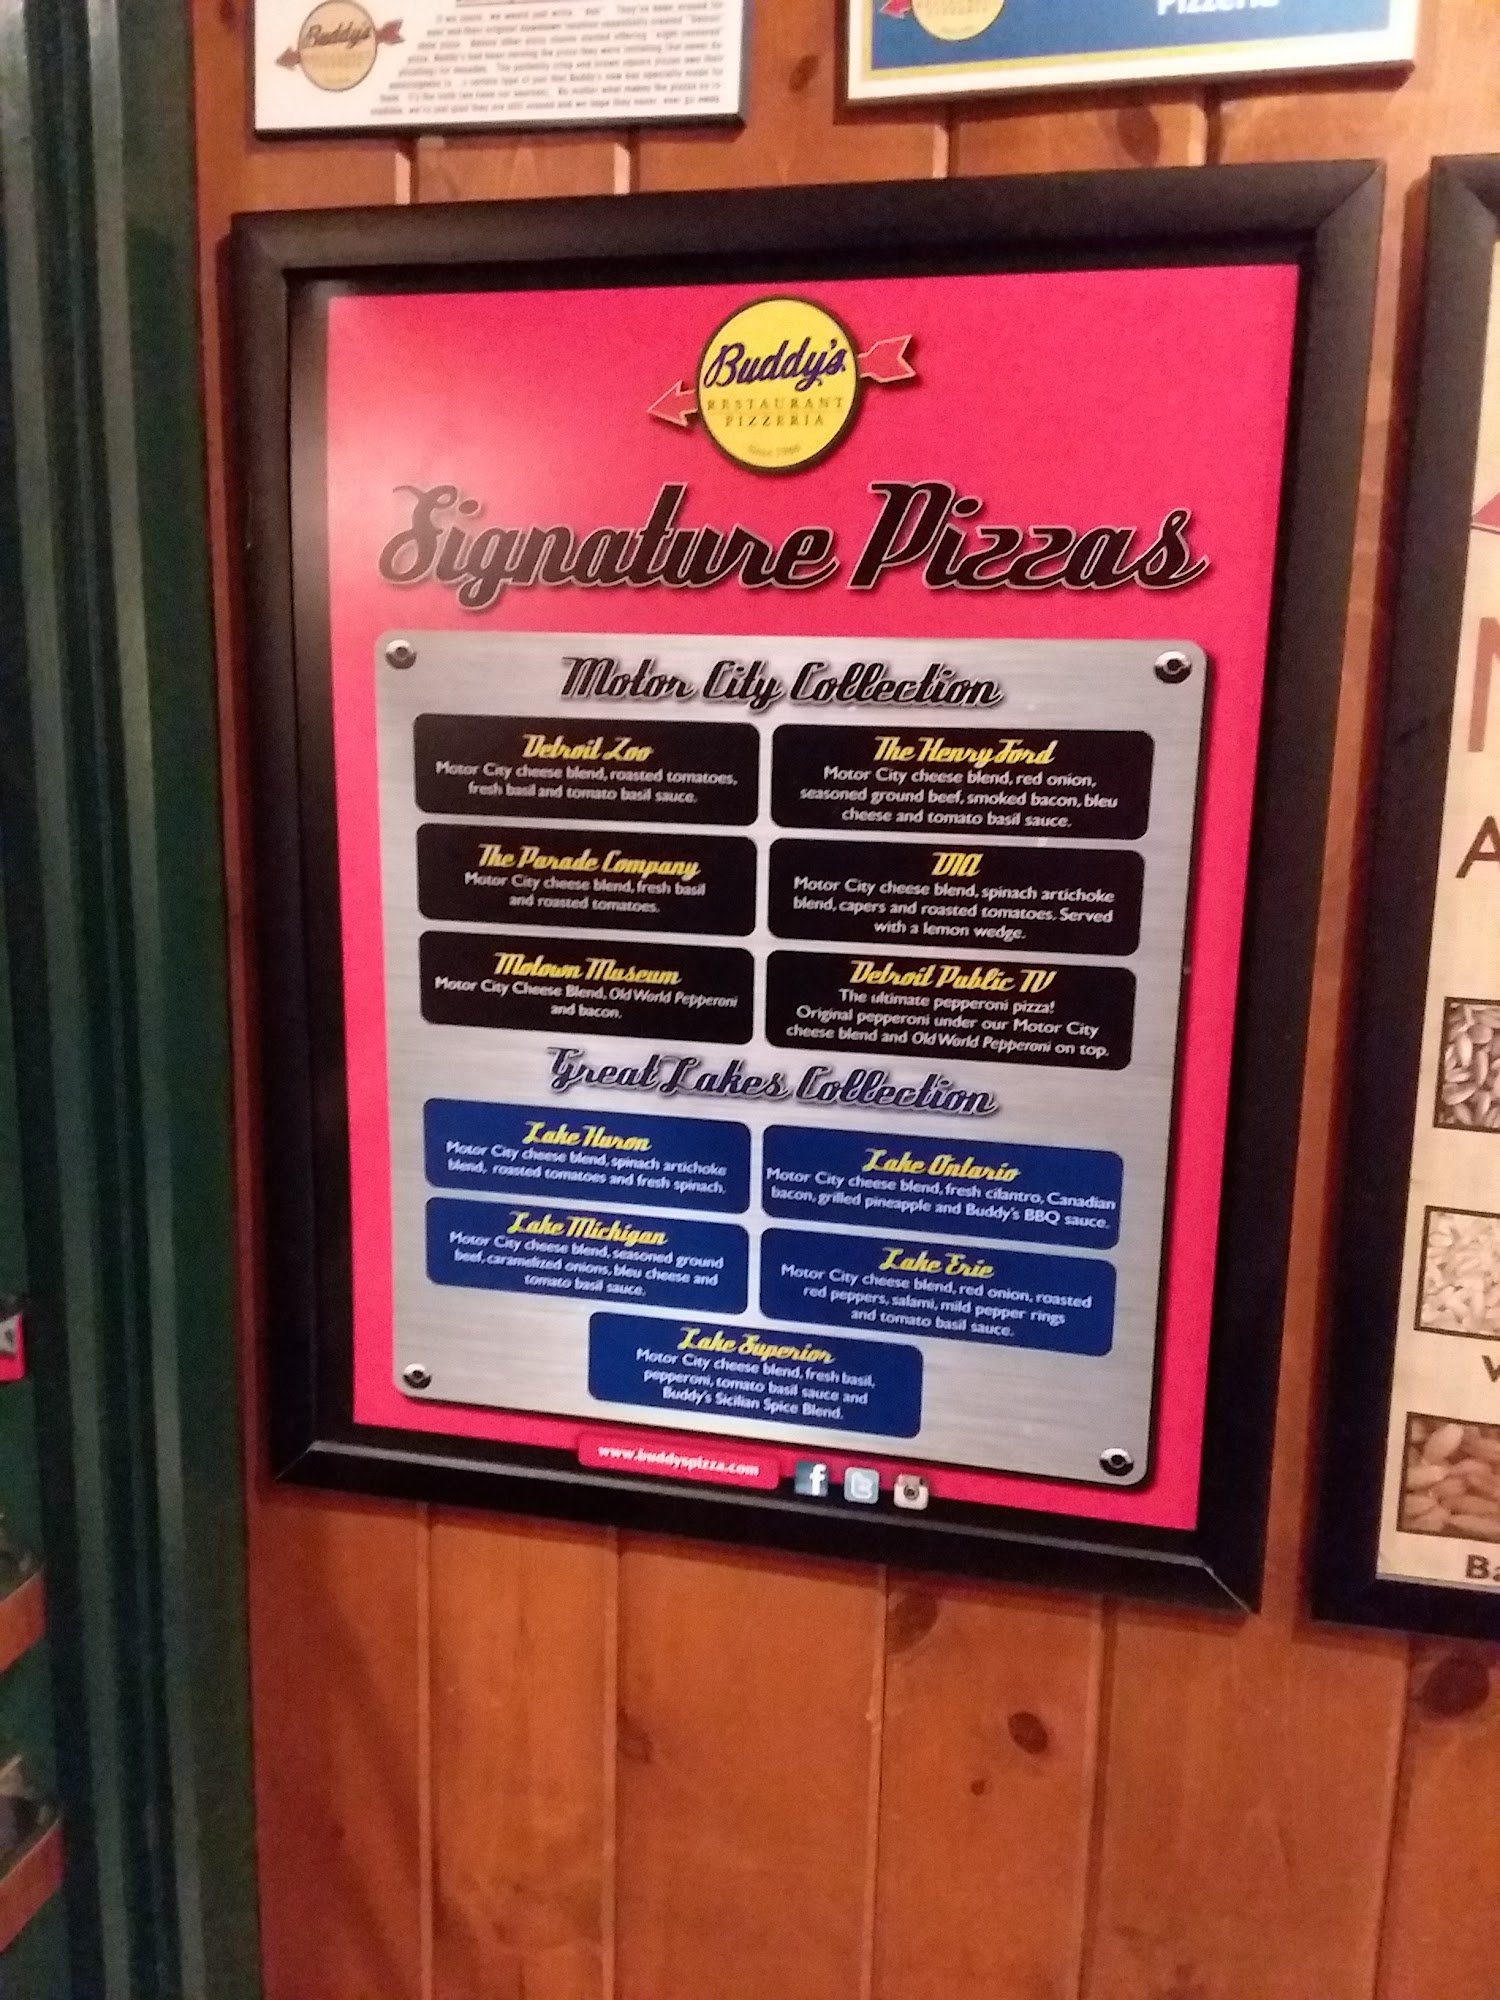 Buddy's
Pizzeria
Buddy's
RESTAURANT
PIZZERIA
Signature Pizzas
Motor City Collection
Detroit Zoo
Motor City cheese blend, roasted tomatoes,
fresh basil and tomato basil sauce.
The Henry Ford
Motor City cheese blend, red onion,
seasoned ground beef, smoked bacon, bleu
cheese and tomato basil sauce.
The Parade Company
Motor City cheese blend, fresh basil
and roasted tomatoes.
DIA
Motor City cheese blend, spinach artichoke
blend, capers and roasted tomatoes. Served
with a lemon wedge.
Motown Museum
Motor City Cheese Blend, Old World Pepperoni
and bacon.
Detroit Public TV
The ultimate pepperoni pizza!
Original pepperoni under our Motor City
cheese blend and Old World Pepperoni on top.
Great Lakes Collection
Lake Huron
Motor City cheese blend, spinach artichoke
blend, roasted tomatoes and fresh spinach.
Lake Ontario
Motor City cheese blend, fresh cilantro, Canadian
bacon, grilled pineapple and Buddy's BBQ sauce.
Lake Michigan
Motor City cheese blend, seasoned ground
beef, caramelized onions, bleu cheese and
tomato basil sauce.
Lake Erie
Motor City cheese blend, red onion, roasted
red peppers, salami, mild pepper rings
and tomato basil sauce.
Lake Superior
Motor City cheese blend, fresh basil,
pepperoni, tomato basil sauce and
Buddy's Sicilian Spice Blend.
www.buddyspizza.com